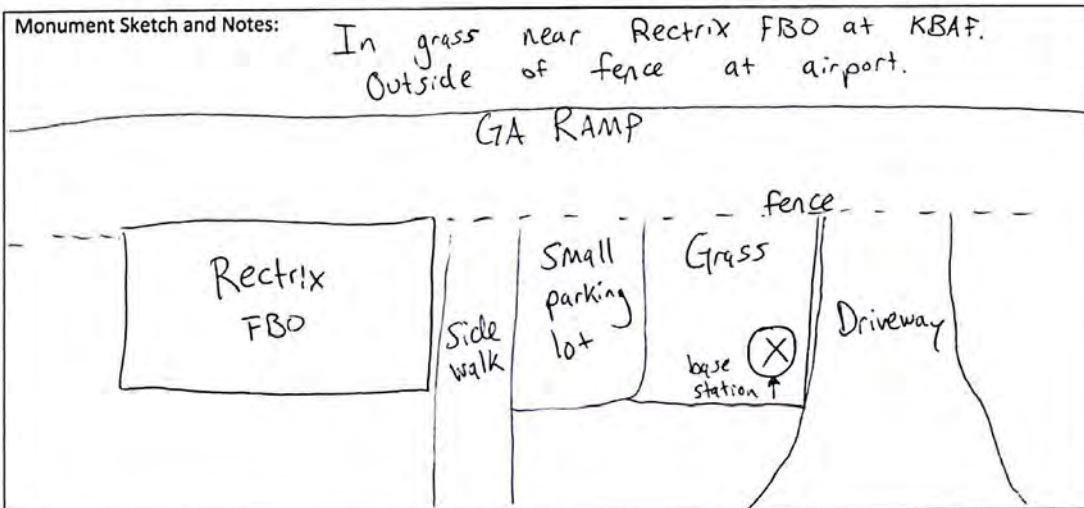 Monument Sketch and Notes:
In grass near Rectrix FBO at KBAF.
Outside of fence at airport.
GA RAMP
fence
Rectrix
FBO
Side
walk
Small
parking
lot
Grass
base
station
X
Driveway